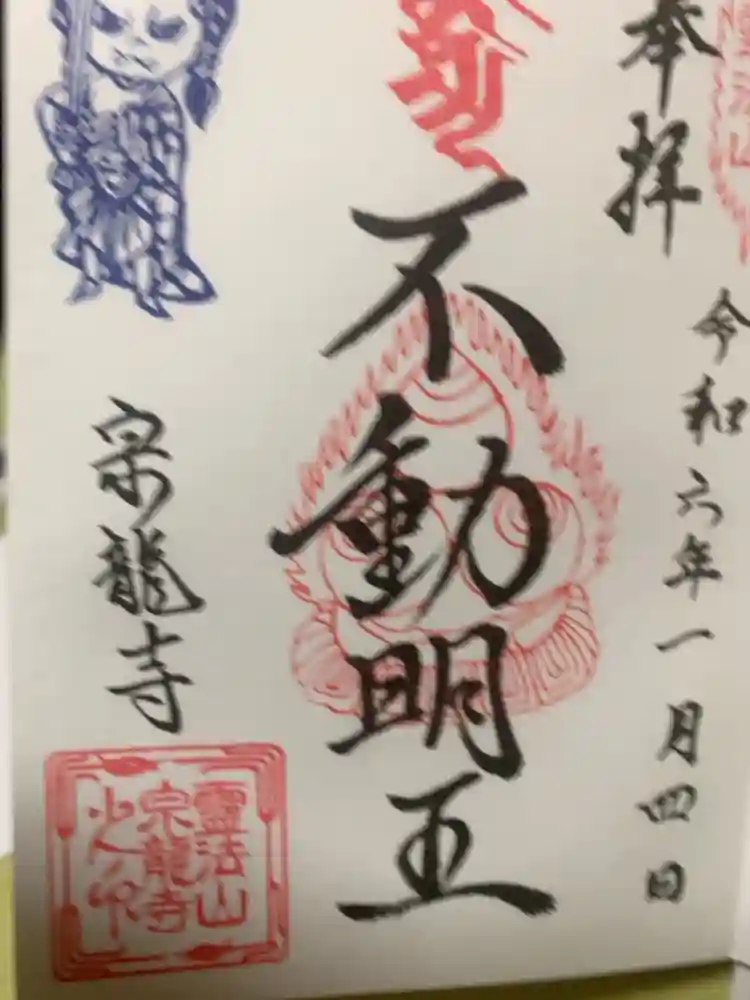 奉拝
令和六年一月四日
不動明王
宗龍寺
靈法山
宗龍寺
之印